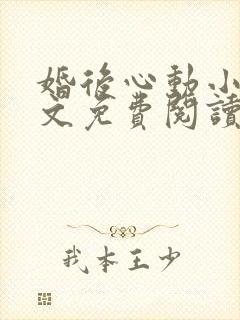 婚後心動小
文免費閱讀
我本王少